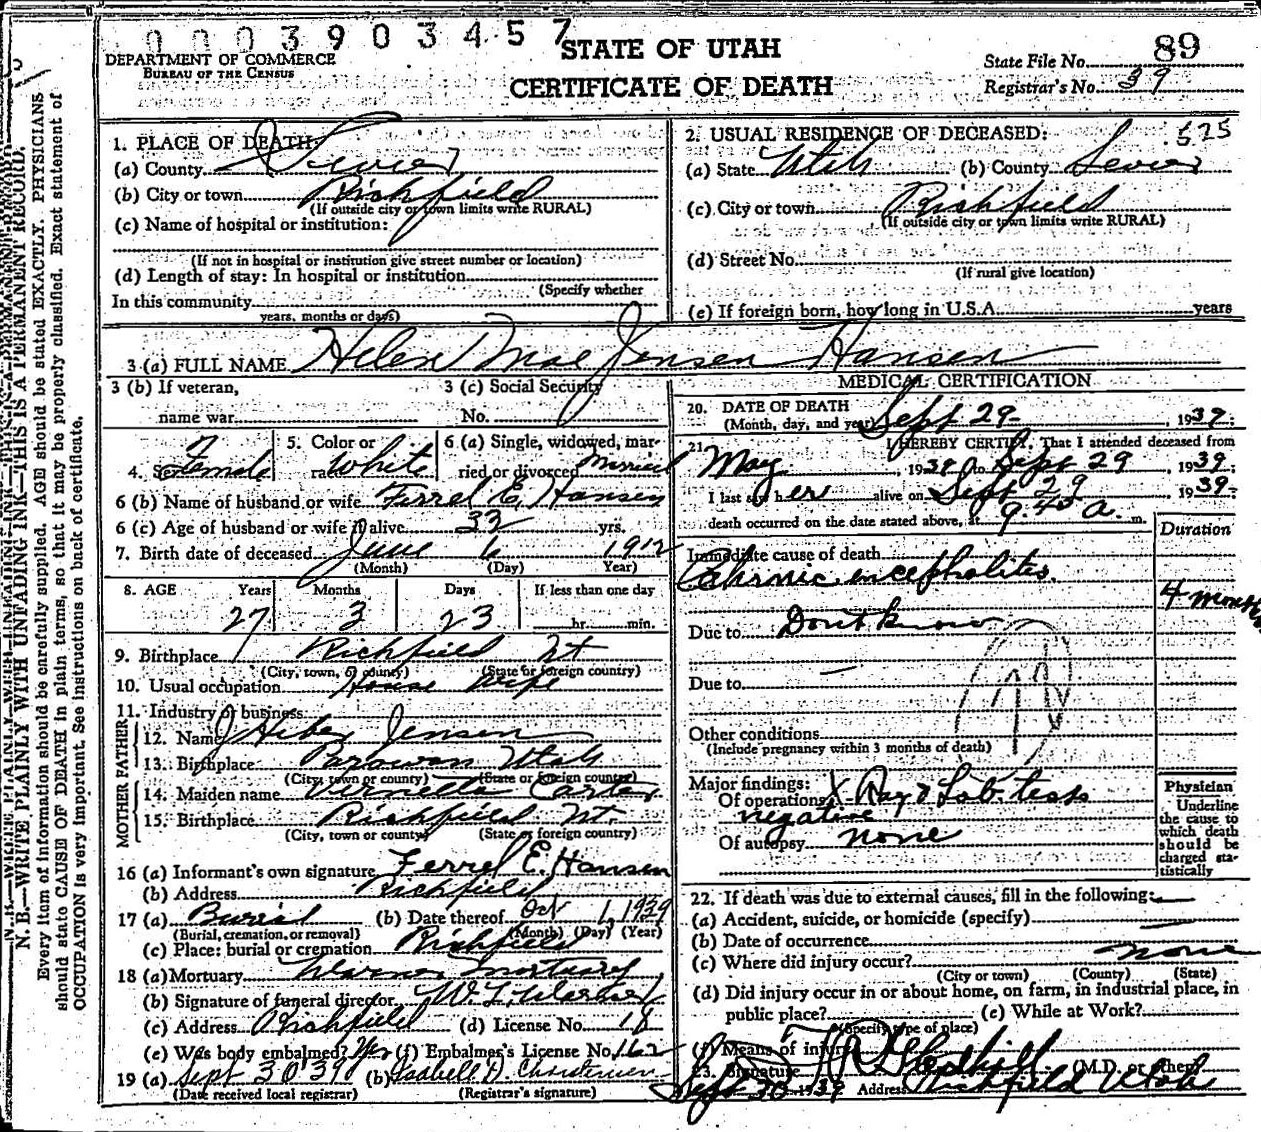 0003903457
STATE OF UTAH
CERTIFICATE OF DEATH
DEPARTMENT OF COMMERCE
BUREAU OF THE CENSUS
State File No. 89
Registrar's No. 39
N. B.—WRITE PLAINLY WITH UNFADING INK—THIS IS A PERMANENT RECORD.
Every item of information should be carefully supplied. AGE should be stated EXACTLY. PHYSICIANS
should state CAUSE OF DEATH in plain terms, so that it may be properly classified. Exact statement of
OCCUPATION is very important. See instructions on back of certificate.
1. PLACE OF DEATH:
(a) County Sevier
(b) City or town Richfield
(If outside city or town limits write RURAL)
(c) Name of hospital or institution:
(If not in hospital or institution give street number or location)
(d) Length of stay: In hospital or institution
(Specify whether
In this community
years, months or days)
2. USUAL RESIDENCE OF DECEASED: 575
(a) State Utah (b) County Sevier
(c) City or town Richfield
(If outside city or town limits write RURAL)
(d) Street No.
(If rural give location)
(e) If foreign born, how long in U.S.A. years
3 (a) FULL NAME Helen Mae Jensen Hansen
3 (b) If veteran, 3 (c) Social Security
name war No.
4. Sex Female 5. Color or race White 6 (a) Single, widowed, married or divorced Married
6 (b) Name of husband or wife Ferrel E. Hansen
6 (c) Age of husband or wife if alive 33 yrs.
7. Birth date of deceased June 6 1912
(Month) (Day) Year)
8. AGE Years Months Days If less than one day
27 3 23 hr. min.
9. Birthplace Richfield Ut
(City, town, or county) (State or foreign country)
10. Usual occupation House Wife
11. Industry or business
FATHER
12. Name Heber Jensen
13. Birthplace Parowan Utah
(City, town or county) (State or foreign country)
MOTHER
14. Maiden name Vernetta Carter
15. Birthplace Richfield Ut.
(City, town or county) (State or foreign country)
16 (a) Informant's own signature Ferrel E. Hansen
(b) Address Richfield
17 (a) Burial (b) Date thereof Oct 1, 1939
(Burial, cremation, or removal) (Month) (Day) (Year)
(c) Place: burial or cremation Richfield
18 (a) Mortuary Warner Mortuary
(b) Signature of funeral director W. L. Warner
(c) Address Richfield (d) License No. 18
(e) Was body embalmed? Yes (f) Embalmer's License No. 162
19 (a) Sept 30 39 (b) Isabell D. Christensen
(Date received local registrar) (Registrar's signature)
MEDICAL CERTIFICATION
20. DATE OF DEATH
(Month, day, and year) Sept 29- , 1939.
21. I HEREBY CERTIFY, That I attended deceased from
May , 1939 to Sept 29 , 1939.
I last saw her alive on Sept 29 , 1939.
death occurred on the date stated above, at 9.40 a. m.
Duration
Immediate cause of death
Cahrnic encepholites.
4 months
Due to Dont know
Due to
Other conditions
(Include pregnancy within 3 months of death)
Major findings:
Of operations X-Ray & Lab. tests
negative
Of autopsy none
Physician
Underline
the cause to
which death
should be
charged sta-
tistically
22. If death was due to external causes, fill in the following:
(a) Accident, suicide, or homicide (specify)
(b) Date of occurrence
(c) Where did injury occur? none
(City or town) (County) (State)
(d) Did injury occur in or about home, on farm, in industrial place, in
public place? (e) While at Work?
(Specify type of place)
(f) Means of injury
23. Signature (M.D. or other)
Sept 30 1939 Address Richfield Utah